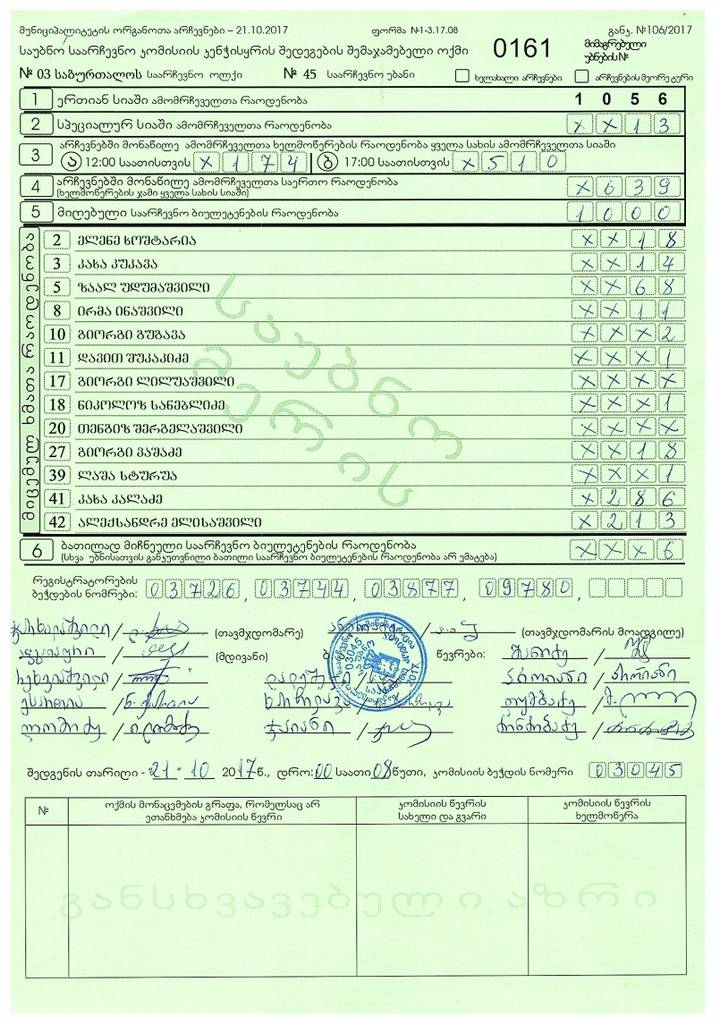 მუნიციპალიტეტის ორგანოთა არჩევნები – 21.10.2017 ფორმა №1-3.17.08 განკ. №106/2017
საუბნო საარჩევნო კომისიის კენჭისყრის შედეგების შემაჯამებელი ოქმი 0161 მიმაგრებული უბნების №
№ 03 საბურთალოს საარჩევნო ოლქი № 45 საარჩევნო უბანი ხელახალი არჩევნები არჩევნების მეორე ტური
1 ერთიან სიაში ამომრჩეველთა რაოდენობა 1056
2 სპეციალურ სიაში ამომრჩეველთა რაოდენობა XX13
არჩევნებში მონაწილე ამომრჩეველთა ხელმოწერების რაოდენობა ყველა სახის ამომრჩეველთა სიაში
3 ა 12:00 საათისთვის X174 ბ 17:00 საათისთვის X510
4 არჩევნებში მონაწილე ამომრჩეველთა საერთო რაოდენობა X639
(ხელმოწერების ჯამი ყველა სახის სიაში)
5 მიღებული საარჩევნო ბიულეტენების რაოდენობა 1000
მიცემულ ხმათა რაოდენობა
2 ელენე ხოშტარია XX18
3 კახა კუკავა XX14
5 ზაალ უდუმაშვილი XX68
8 ირმა ინაშვილი XX11
10 გიორგი გუგავა XXX2
11 დავით შუკაკიძე XXX1
17 გიორგი ლილუაშვილი XXXX
18 ნიკოლოზ სანებლიძე XXX1
20 თენგიზ შერგელაშვილი XXXX
27 გიორგი ვაშაძე XX18
39 ლაშა სტურუა XXX1
41 კახა კალაძე X286
42 ალექსანდრე ელისაშვილი X213
საუბნო
მერის
6 ბათილად მიჩნეული საარჩევნო ბიულეტენების რაოდენობა XXX6
(სხვა უბნისათვის განკუთვნილი ბათილი საარჩევნო ბიულეტენების რაოდენობა არ ემატება)
რეგისტრატორების
ბეჭდების ნომრები: 03726, 03744, 03877, 09780,
(თავმჯდომარე) (თავმჯდომარის მოადგილე)
(მდივანი) წევრები:
შედგენის თარიღი - 21 - 10 2017წ., დრო: 00 საათი 08 წუთი, კომისიის ბეჭდის ნომერი 03045
№ ოქმის მონაცემების გრაფა, რომელსაც არ ეთანხმება კომისიის წევრი კომისიის წევრის სახელი და გვარი კომისიის წევრის ხელმოწერა
განსხვავებული აზრი